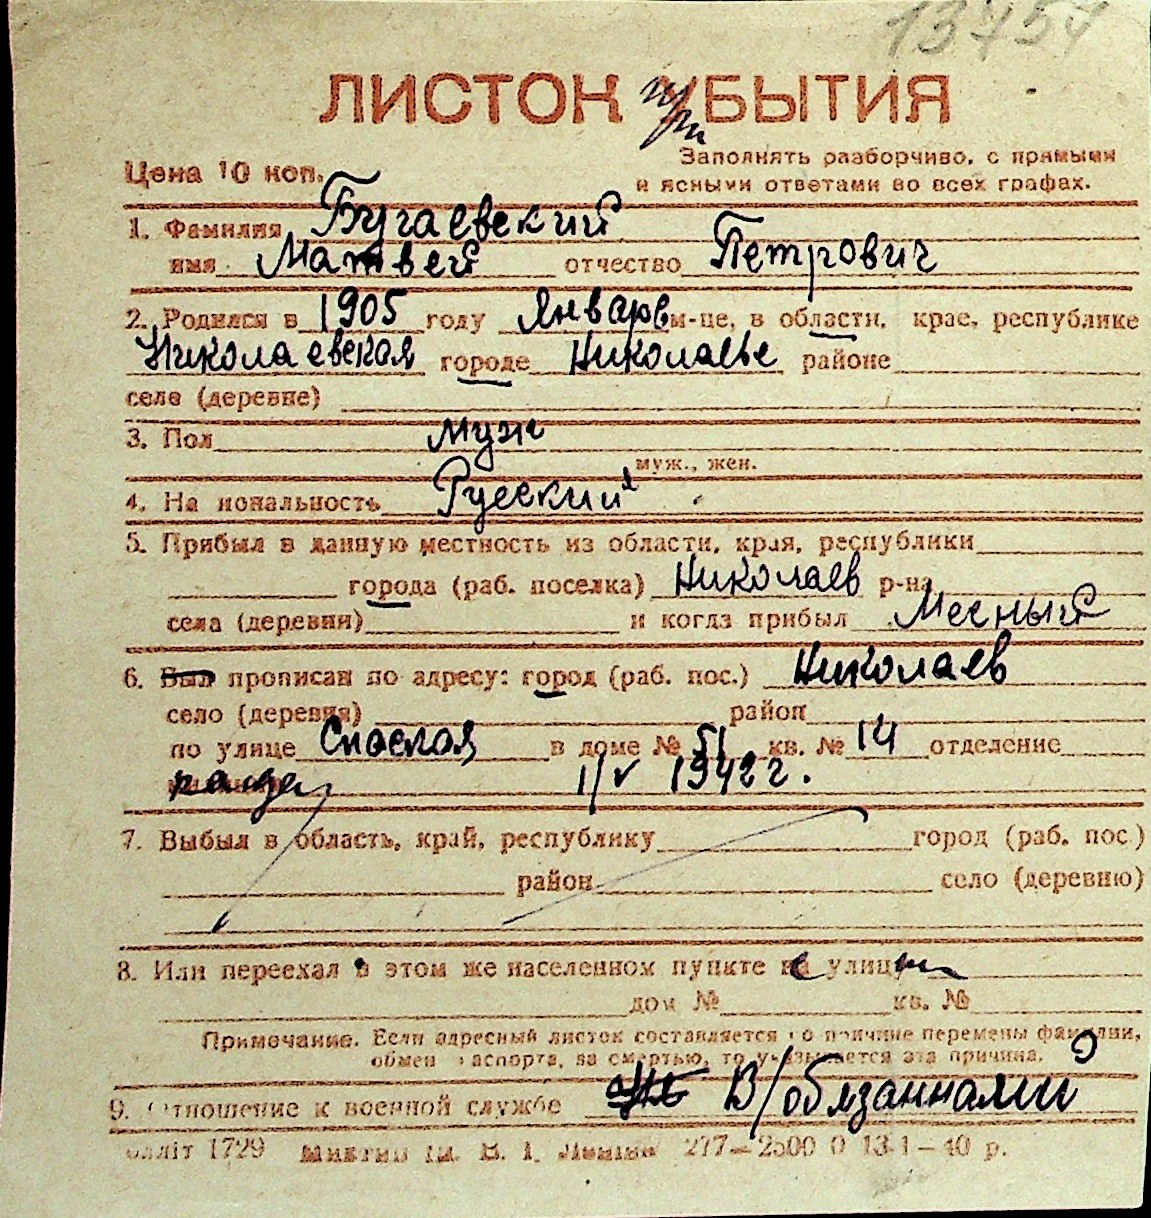 13757
ЛИСТОК УБЫТИЯ
при
Заполнять разборчиво, с прямыми
и ясными ответами во всех графах.
Цена 10 коп.
1. Фамилия Бугаевский
имя Матвей отчество Петрович
2. Родился в 1905 году Январь м-це, в области, крае, республике
Николаевская городе Николаеве районе
селе (деревне)
3. Пол муж
муж., жен.
4. Национальность Русский
5. Прибыл в данную местность из области, края, республики
города (раб. поселка) Николаев р-на
села (деревня) и когда прибыл Месный
6. Был прописан по адресу: город (раб. пос.) Николаев
село (деревня) район
по улице Спаская в доме № 51 кв. № 14 отделение
1/V 1942 г.
7. Выбыл в область, край, республику город (раб. пос.)
район село (деревню)
8. Или переехал в этом же населенном пункте с улицы
дом № кв. №
Примечание. Если адресный листок составляется по причине перемены фамилии,
обмен паспорта, за смертью, то указывается эта причина.
9. Отношение к военной службе В/обязанный
1729 277—2500 0 13-1—40 р.